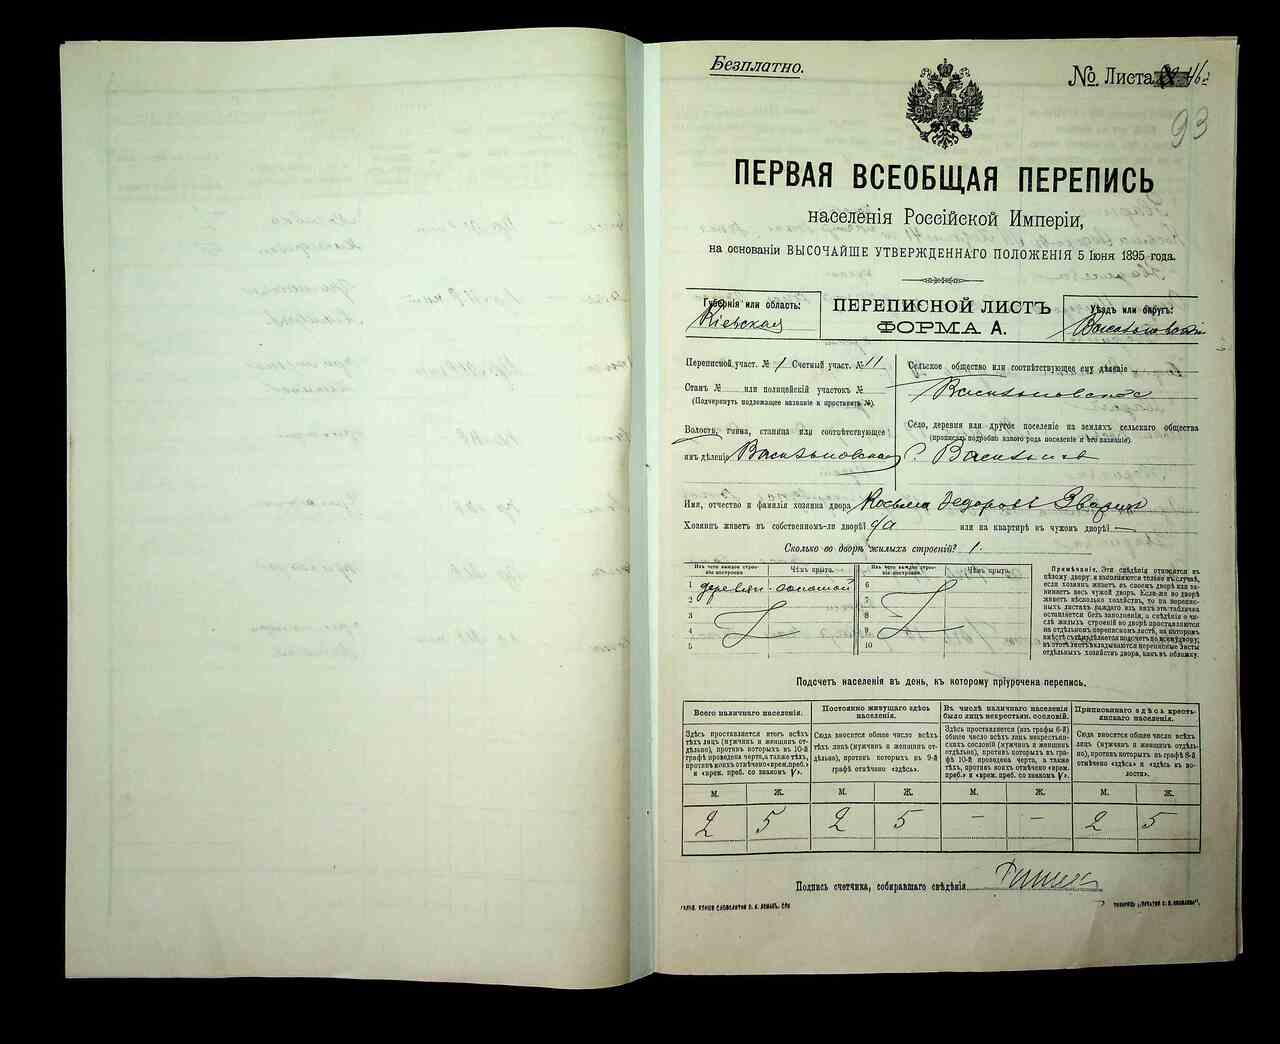 Безплатно.
№ Листа
93
ПЕРВАЯ ВСЕОБЩАЯ ПЕРЕПИСЬ
населенія Россійской Имперіи,
на основаніи ВЫСОЧАЙШЕ УТВЕРЖДЕННАГО ПОЛОЖЕНІЯ 5 Іюня 1895 года.
Губернія или область:
Кіевская
ПЕРЕПИСНОЙ ЛИСТЪ
ФОРМА А.
Уѣздъ или округъ:
Васильковскій
Переписной участ. № 1 Счетный участ. № 11
Станъ № или полицейскій участокъ №
(Подчеркнуть подлежащее названіе и проставить №).
Волость, гмина, станица или соотвѣтствующее
имъ дѣленіе Васильковская
Сельское общество или соотвѣтствующее ему дѣленіе
Васильковское
Село, деревня или другое поселеніе на земляхъ сельскаго общества
(прописать подробно какого рода поселеніе и его названіе).
Г. Васильковъ
Имя, отчество и фамилія хозяина двора Косьма Федоровъ Зварич
Хозяинъ живетъ въ собственномъ-ли дворѣ? да или на квартирѣ въ чужомъ дворѣ? —
Сколько во дворѣ жилыхъ строеній? 1.
Изъ чего каждое строеніе построено. Чѣмъ крыта. Изъ чего каждое строеніе построено. Чѣмъ крыта.
1 деревян. соломой 6
2 7
3 8
4 9
5 10
Примѣчаніе. Эти свѣдѣнія относятся къ
цѣлому двору и выполняются только въ случаѣ,
если хозяинъ живетъ въ своемъ дворѣ или занимаетъ весь чужой дворъ. Если-же во дворѣ
живетъ нѣсколько хозяйствъ, то на переписныхъ листахъ каждаго изъ нихъ эта табличка
оставляется безъ заполненія, а свѣдѣнія о числѣ жилыхъ строеній во дворѣ проставляются
на отдѣльномъ переписномъ листѣ, на которомъ
вмѣстѣ съ тѣмъ дѣлается подсчетъ по всему двору;
въ этотъ листъ вкладываются переписные листы
отдѣльныхъ хозяйствъ двора, какъ въ обложку.
Подсчетъ населенія въ день, къ которому пріурочена перепись.
Всего наличнаго населенія.
Здѣсь проставляется итогъ всѣхъ
тѣхъ лицъ (мужчинъ и женщинъ отдѣльно), противъ которыхъ въ 10-й
графѣ проведена черта, а также тѣхъ,
противъ коихъ отмѣчено «врем. преб.»
и «врем. преб. со знакомъ V».
Постоянно живущаго здѣсь
населенія.
Сюда вносится общее число всѣхъ
тѣхъ лицъ (мужчинъ и женщинъ отдѣльно), противъ которыхъ въ 9-й
графѣ отмѣчено «здѣсь».
Въ числѣ наличнаго населенія
было лицъ некрестьян. сословій.
Здѣсь проставляется (изъ графы 6-й)
общее число всѣхъ лицъ некрестьянскихъ сословій (мужчинъ и женщинъ
отдѣльно), противъ которыхъ въ графѣ 10-й проведена черта, а также
тѣхъ, противъ коихъ отмѣчено «врем.
преб.» и «врем. преб. со знакомъ V».
Приписаннаго здѣсь крестьянскаго населенія.
Сюда вносится общее число всѣхъ
лицъ (мужчинъ и женщинъ отдѣльно), противъ которыхъ въ графѣ 8-й
отмѣчено «здѣсь» и «здѣсь въ волости».
М. Ж. М. Ж. М. Ж. М. Ж.
2 5 2 5 — — 2 5
Подпись счетчика, собиравшаго свѣдѣнія